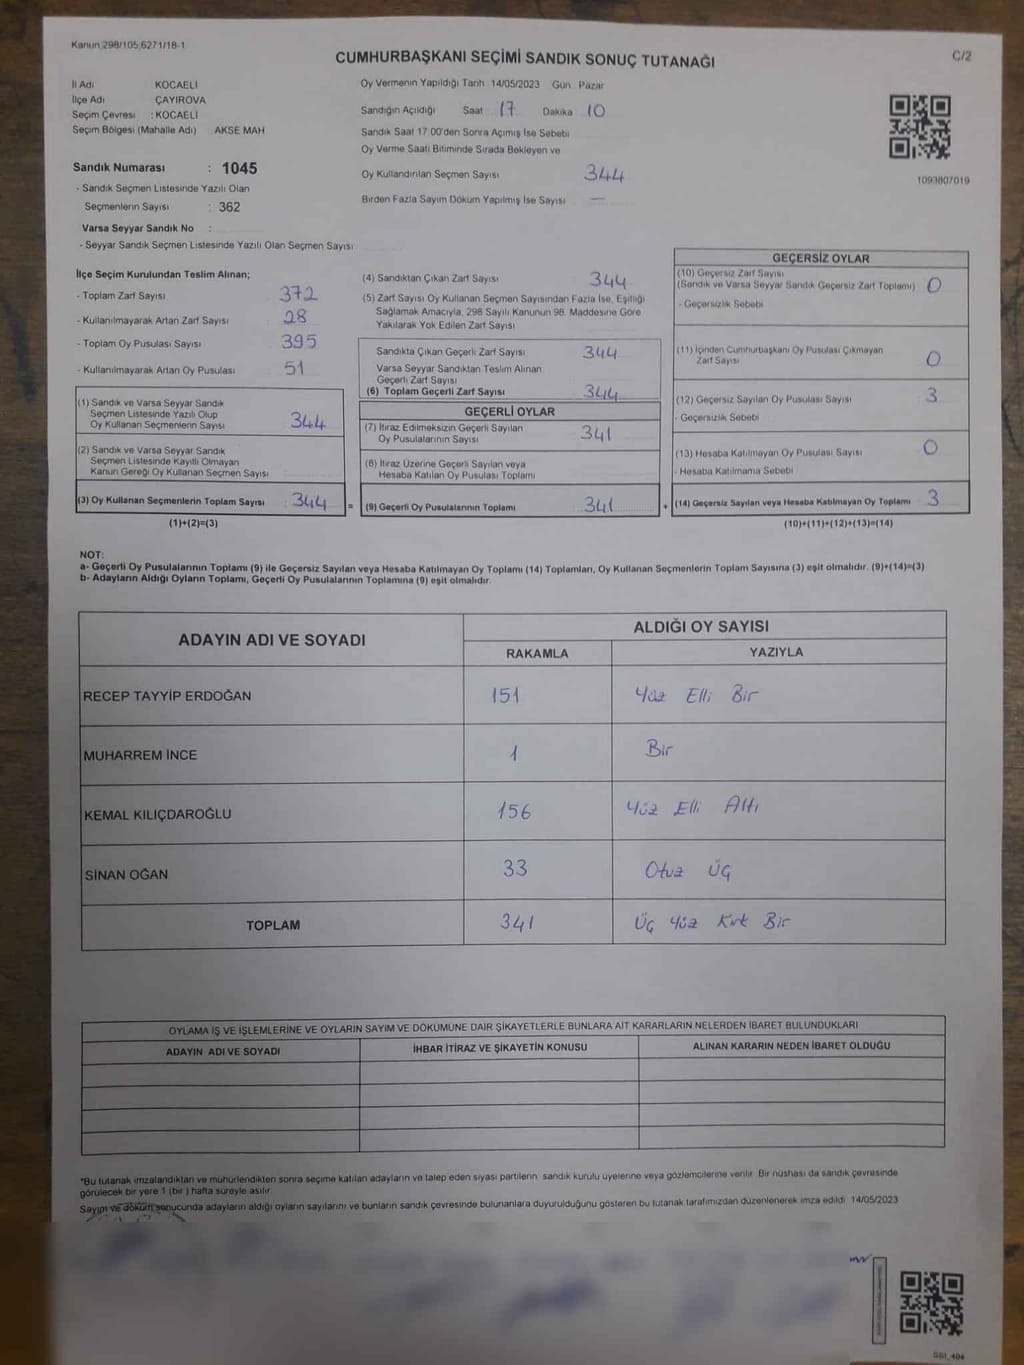 Kanun 298/105,6271/18-1
CUMHURBAŞKANI SEÇİMİ SANDIK SONUÇ TUTANAĞI
C/2
İl Adı KOCAELİ
İlçe Adı ÇAYIROVA
Seçim Çevresi : KOCAELİ
Seçim Bölgesi (Mahalle Adı) AKSE MAH
Sandık Numarası : 1045
- Sandık Seçmen Listesinde Yazılı Olan
Seçmenlerin Sayısı : 362
Varsa Seyyar Sandık No :
- Seyyar Sandık Seçmen Listesinde Yazılı Olan Seçmen Sayısı
Oy Vermenin Yapıldığı Tarih 14/05/2023 Gün Pazar
Sandığın Açıldığı Saat 17 Dakika 10
Sandık Saat 17.00'den Sonra Açımış İse Sebebi
Oy Verme Saati Bitiminde Sırada Bekleyen ve
Oy Kullandırılan Seçmen Sayısı 344
Birden Fazla Sayım Döküm Yapılmış İse Sayısı —
1093807019
İlçe Seçim Kurulundan Teslim Alınan;
- Toplam Zarf Sayısı 372
- Kullanılmayarak Artan Zarf Sayısı 28
- Toplam Oy Pusulası Sayısı 395
- Kullanılmayarak Artan Oy Pusulası 51
(1) Sandık ve Varsa Seyyar Sandık
Seçmen Listesinde Yazılı Olup
Oy Kullanan Seçmenlerin Sayısı 344
(2) Sandık ve Varsa Seyyar Sandık
Seçmen Listesinde Kayıtlı Olmayan
Kanun Gereği Oy Kullanan Seçmen Sayısı
(3) Oy Kullanan Seçmenlerin Toplam Sayısı 344
(1)+(2)=(3)
(4) Sandıktan Çıkan Zarf Sayısı 344
(5) Zarf Sayısı Oy Kullanan Seçmen Sayısından Fazla İse, Eşitliği
Sağlamak Amacıyla, 298 Sayılı Kanunun 98. Maddesine Göre
Yakılarak Yok Edilen Zarf Sayısı
Sandıkta Çıkan Geçerli Zarf Sayısı 344
Varsa Seyyar Sandıktan Teslim Alınan
Geçerli Zarf Sayısı
(6) Toplam Geçerli Zarf Sayısı 344
GEÇERLİ OYLAR
(7) İtiraz Edilmeksizin Geçerli Sayılan
Oy Pusulalarının Sayısı 341
(8) İtiraz Üzerine Geçerli Sayılan veya
Hesaba Katılan Oy Pusulası Toplamı
= (9) Geçerli Oy Pusulalarının Toplamı 341 +
GEÇERSİZ OYLAR
(10) Geçersiz Zarf Sayısı
(Sandık ve Varsa Seyyar Sandık Geçersiz Zarf Toplamı) 0
- Geçersizlik Sebebi
(11) İçinden Cumhurbaşkanı Oy Pusulası Çıkmayan
Zarf Sayısı 0
(12) Geçersiz Sayılan Oy Pusulası Sayısı 3
- Geçersizlik Sebebi
(13) Hesaba Katılmayan Oy Pusulası Sayısı 0
- Hesaba Katılmama Sebebi
(14) Geçersiz Sayılan veya Hesaba Katılmayan Oy Toplamı 3
(10)+(11)+(12)+(13)=(14)
NOT:
a- Geçerli Oy Pusulalarının Toplamı (9) ile Geçersiz Sayılan veya Hesaba Katılmayan Oy Toplamı (14) Toplamları, Oy Kullanan Seçmenlerin Toplam Sayısına (3) eşit olmalıdır. (9)+(14)=(3)
b- Adayların Aldığı Oyların Toplamı, Geçerli Oy Pusulalarının Toplamına (9) eşit olmalıdır.
ADAYIN ADI VE SOYADI ALDIĞI OY SAYISI
RAKAMLA YAZIYLA
RECEP TAYYİP ERDOĞAN 151 Yüz Elli Bir
MUHARREM İNCE 1 Bir
KEMAL KILIÇDAROĞLU 156 Yüz Elli Altı
SİNAN OĞAN 33 Otuz Üç
TOPLAM 341 Üç Yüz Kırk Bir
OYLAMA İŞ VE İŞLEMLERİNE VE OYLARIN SAYIM VE DÖKÜMÜNE DAİR ŞİKAYETLERLE BUNLARA AİT KARARLARIN NELERDEN İBARET BULUNDUKLARI
ADAYIN ADI VE SOYADI İHBAR İTİRAZ VE ŞİKAYETİN KONUSU ALINAN KARARIN NEDEN İBARET OLDUĞU
*Bu tutanak imzalandıktan ve mühürlendikten sonra seçime katılan adayların ve talep eden siyasi partilerin sandık kurulu üyelerine veya gözlemcilerine verilir. Bir nüshası da sandık çevresinde
görülecek bir yere 1 (bir) hafta süreyle asılır.
Sayım ve döküm sonucunda adayların aldığı oyların sayılarını ve bunların sandık çevresinde bulunanlara duyurulduğunu gösteren bu tutanak tarafımızdan düzenlenerek imza edildi. 14/05/2023